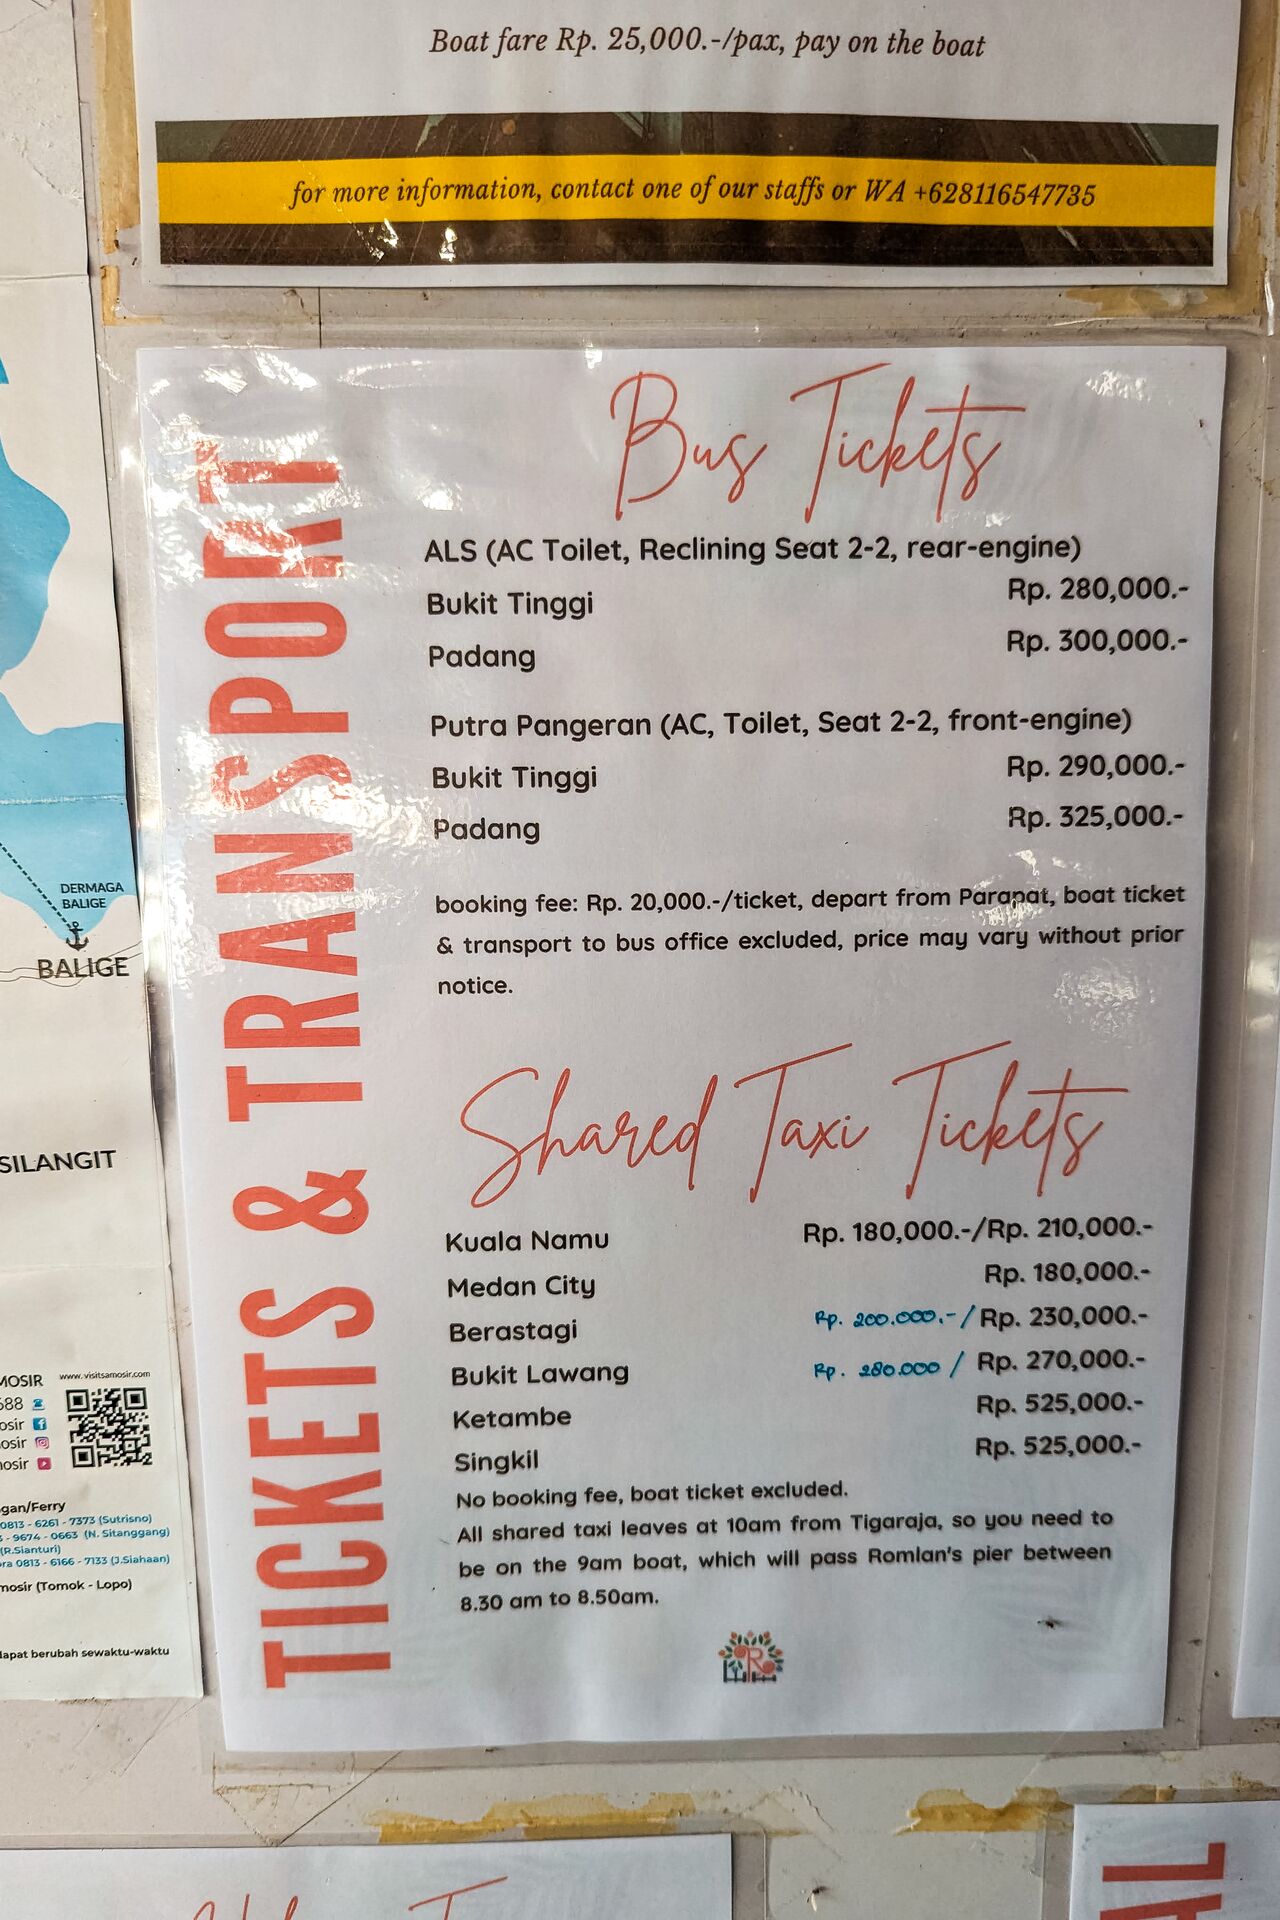 Boat fare Rp. 25,000.-/pax, pay on the boat
for more information, contact one of our staffs or WA +628116547735
TICKETS & TRANSPORT
Bus Tickets
ALS (AC Toilet, Reclining Seat 2-2, rear-engine)
Bukit Tinggi Rp. 280,000.-
Padang Rp. 300,000.-
Putra Pangeran (AC, Toilet, Seat 2-2, front-engine)
Bukit Tinggi Rp. 290,000.-
Padang Rp. 325,000.-
booking fee: Rp. 20,000.-/ticket, depart from Parapat, boat ticket
& transport to bus office excluded, price may vary without prior
notice.
Shared Taxi Tickets
Kuala Namu Rp. 180,000.-/Rp. 210,000.-
Medan City Rp. 180,000.-
Berastagi Rp. 200.000.- / Rp. 230,000.-
Bukit Lawang Rp. 280.000 / Rp. 270,000.-
Ketambe Rp. 525,000.-
Singkil Rp. 525,000.-
No booking fee, boat ticket excluded.
All shared taxi leaves at 10am from Tigaraja, so you need to
be on the 9am boat, which will pass Romlan's pier between
8.30 am to 8.50am.
R
DERMAGA
BALIGE
BALIGE
SILANGIT
MOSIR www.visitsamosir.com
688
osir
osir
mosir
gan/Ferry
0813 - 6261 - 7373 (Sutrisno)
- 9674 - 0663 (N. Sitanggang)
(R.Sianturi)
ora 0813 - 6166 - 7133 (J.Siahaan)
mosir (Tomok - Lopo)
dapat berubah sewaktu-waktu
AL